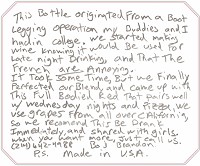 This Bottle originated From a Boot
Legging operation my Buddies and I
had in college, we started making
wine knowing it would Be used for
Late night Drinking, and That The
French are Annoying.
It Took Some Time, But we Finally
Perfected our Blend and came up with
This Full Bodied Red That pairs well
w/ wednesday nights and Pizza, we
use grapes From all over California,
So we recomend This Be Drank
Immediately and shared with girls.
when you want more, Just call us.
Bo & Brandon
P.S. Made in U.S.A.